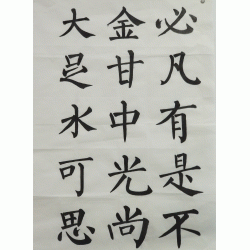 必凡有是不
金甘中光尚
大是水可思